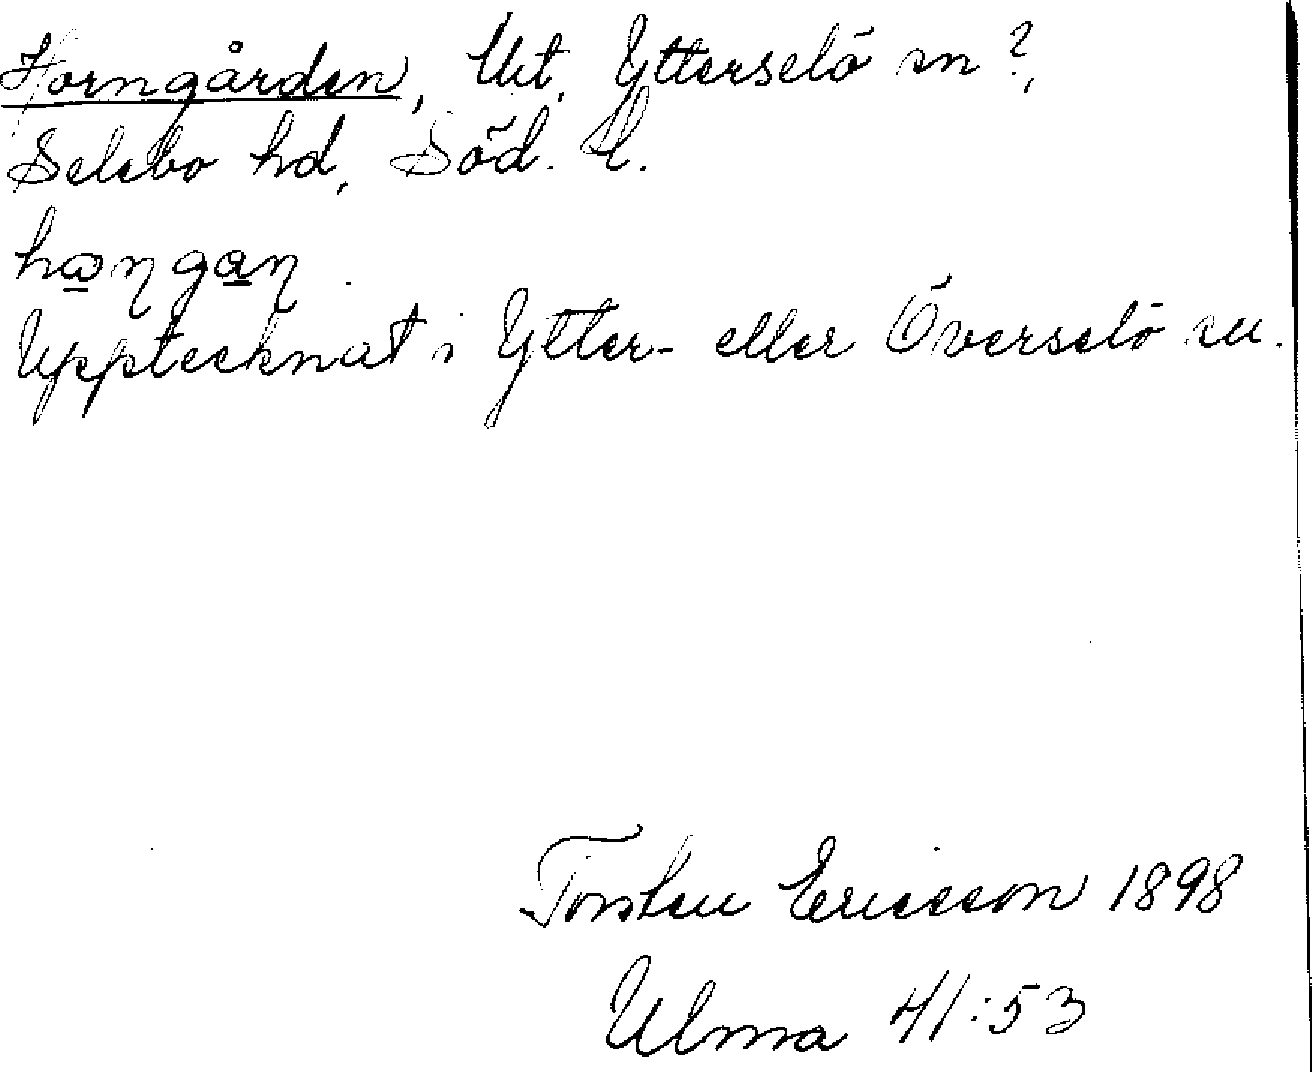 Horngården, Utt. Ytterselö sn?,
Selebo hd, Söd. l.
Upptecknat i Ytter- eller Överselö sn.
Torsten Ericsson 1898
Ulma 41:53